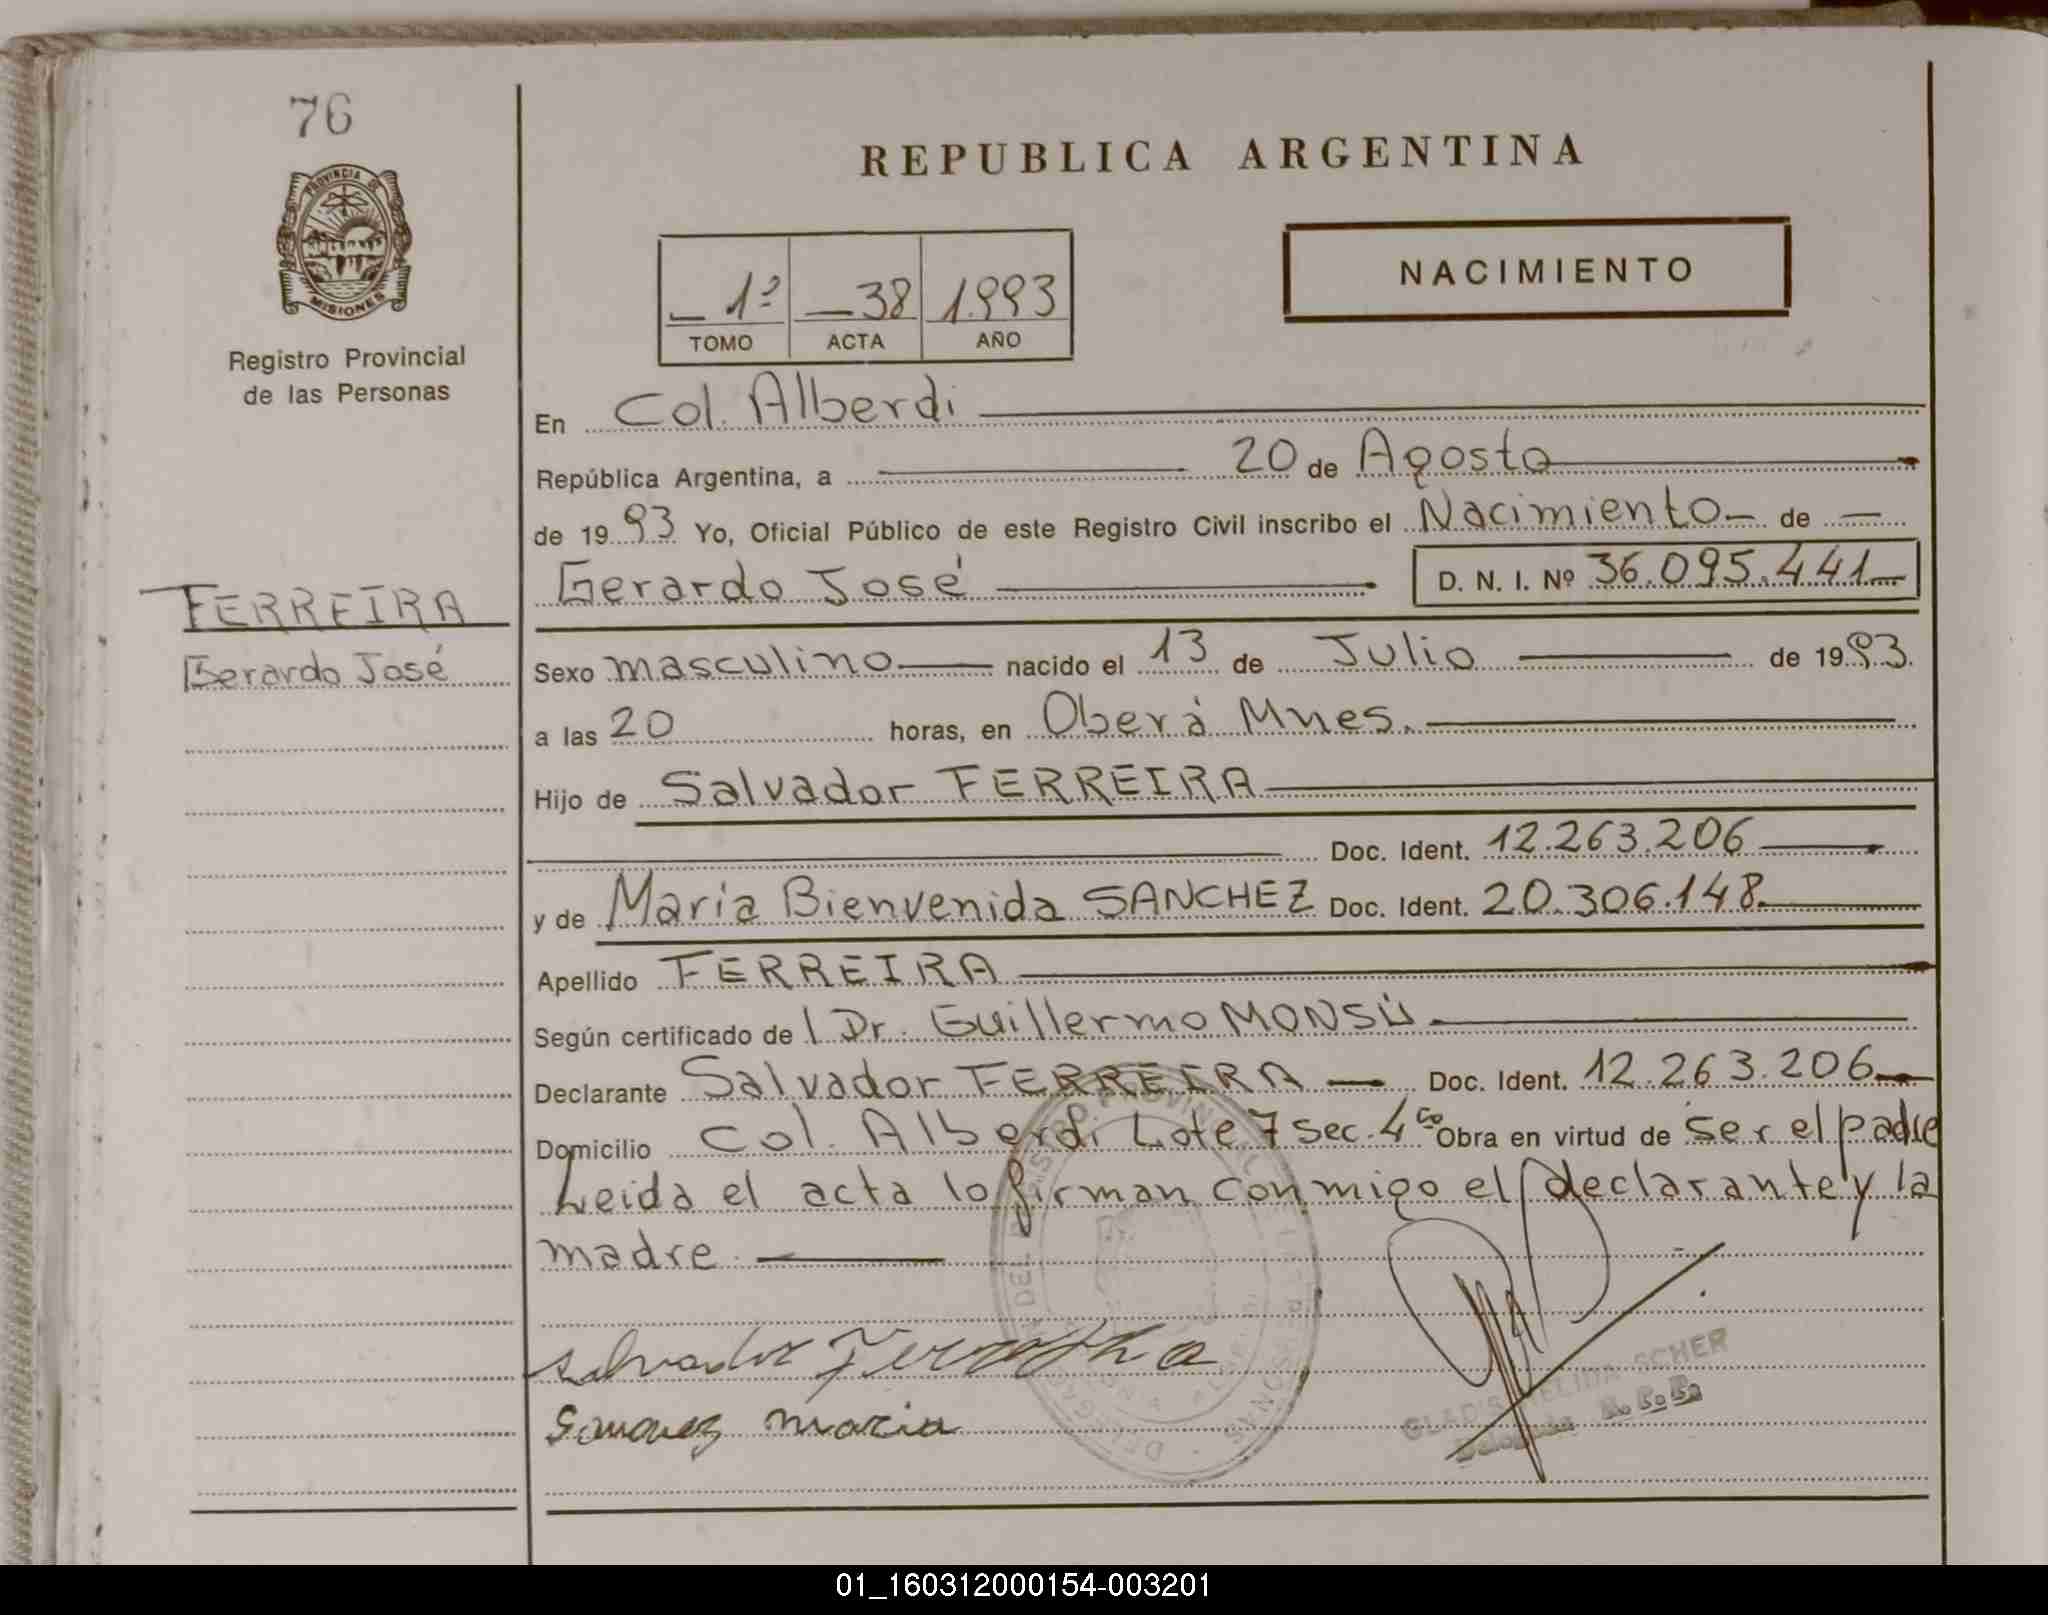 76
REPUBLICA ARGENTINA
PROVINCIA DE
MISIONES
Registro Provincial
de las Personas
1º 38 1.993
TOMO ACTA AÑO
NACIMIENTO
En Col. Alberdi
República Argentina, a 20 de Agosto
de 1993 Yo, Oficial Público de este Registro Civil inscribo el Nacimiento de
Gerardo José D. N. I. Nº 36.095.441
FERREIRA
Gerardo José
Sexo masculino nacido el 13 de Julio de 1993.
a las 20 horas, en Oberá Mnes.
Hijo de Salvador FERREIRA
Doc. Ident. 12.263.206
y de María Bienvenida SANCHEZ Doc. Ident. 20.306.148
Apellido FERREIRA
Según certificado de l Dr. Guillermo MONSÚ
Declarante Salvador FERREIRA Doc. Ident. 12.263.206
Domicilio Col. Alberdi Lote 7 Sec. 4 co Obra en virtud de Ser el padre
Leida el acta lo firman conmigo el declarante y la
madre
Salvador Ferreira
Sanchez Maria
SCHER
Delegada R.P.P.
01_160312000154-003201